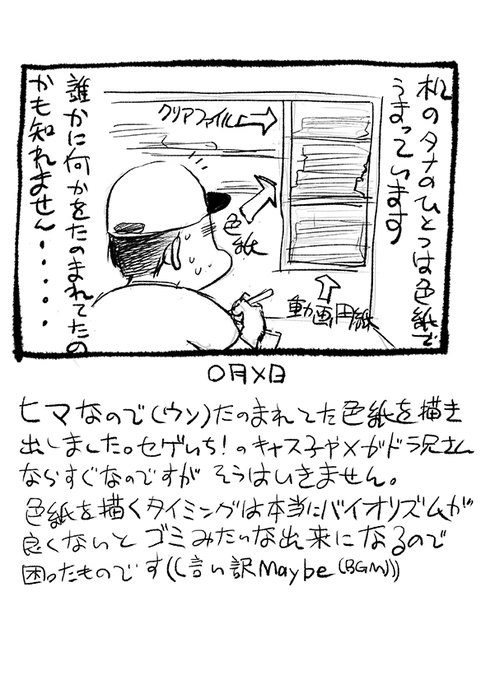 机のタナのひとつは色紙で
うまっています
クリアファイル
色
紙
動画用紙
誰かに何かをたのまれてたの
かも知れません・・・・・
〇月×日
ヒマなので(ウソ)たのまれてた色紙を描き
出しました。セゲいち!のキャス子やメガドラ兄さん
ならすぐなのですが そうはいきません。
色紙を描くタイミングは本当にバイオリズムが
良くないと ゴミみたいな出来になるので
困ったものです((言い訳Maybe(BGM)))